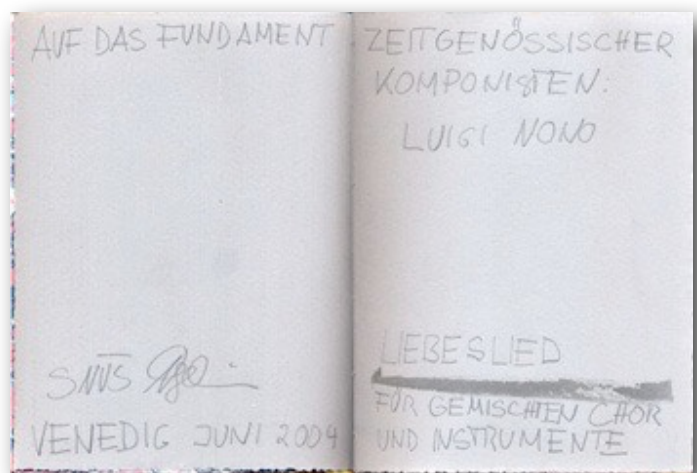 AUF DAS FUNDAMENT
VENEDIG JUNI 2004
ZEITGENÖSSISCHER
KOMPONISTEN:
LUIGI NONO
LIEBESLIED
FÜR GEMISCHTEN CHOR
UND INSTRUMENTE